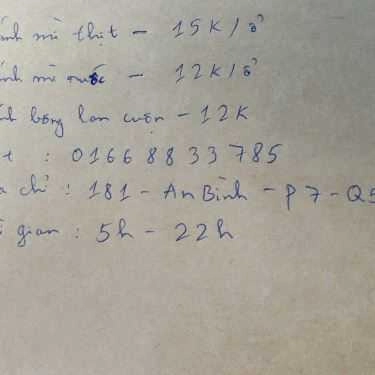 ánh mì thịt - 15K/ổ
ánh mì nước - 12K/ổ
nh bông lan cuộn - 12K
t : 01668833785
a chỉ : 181 - An Bình - P7 - Q5
i gian : 5h - 22h